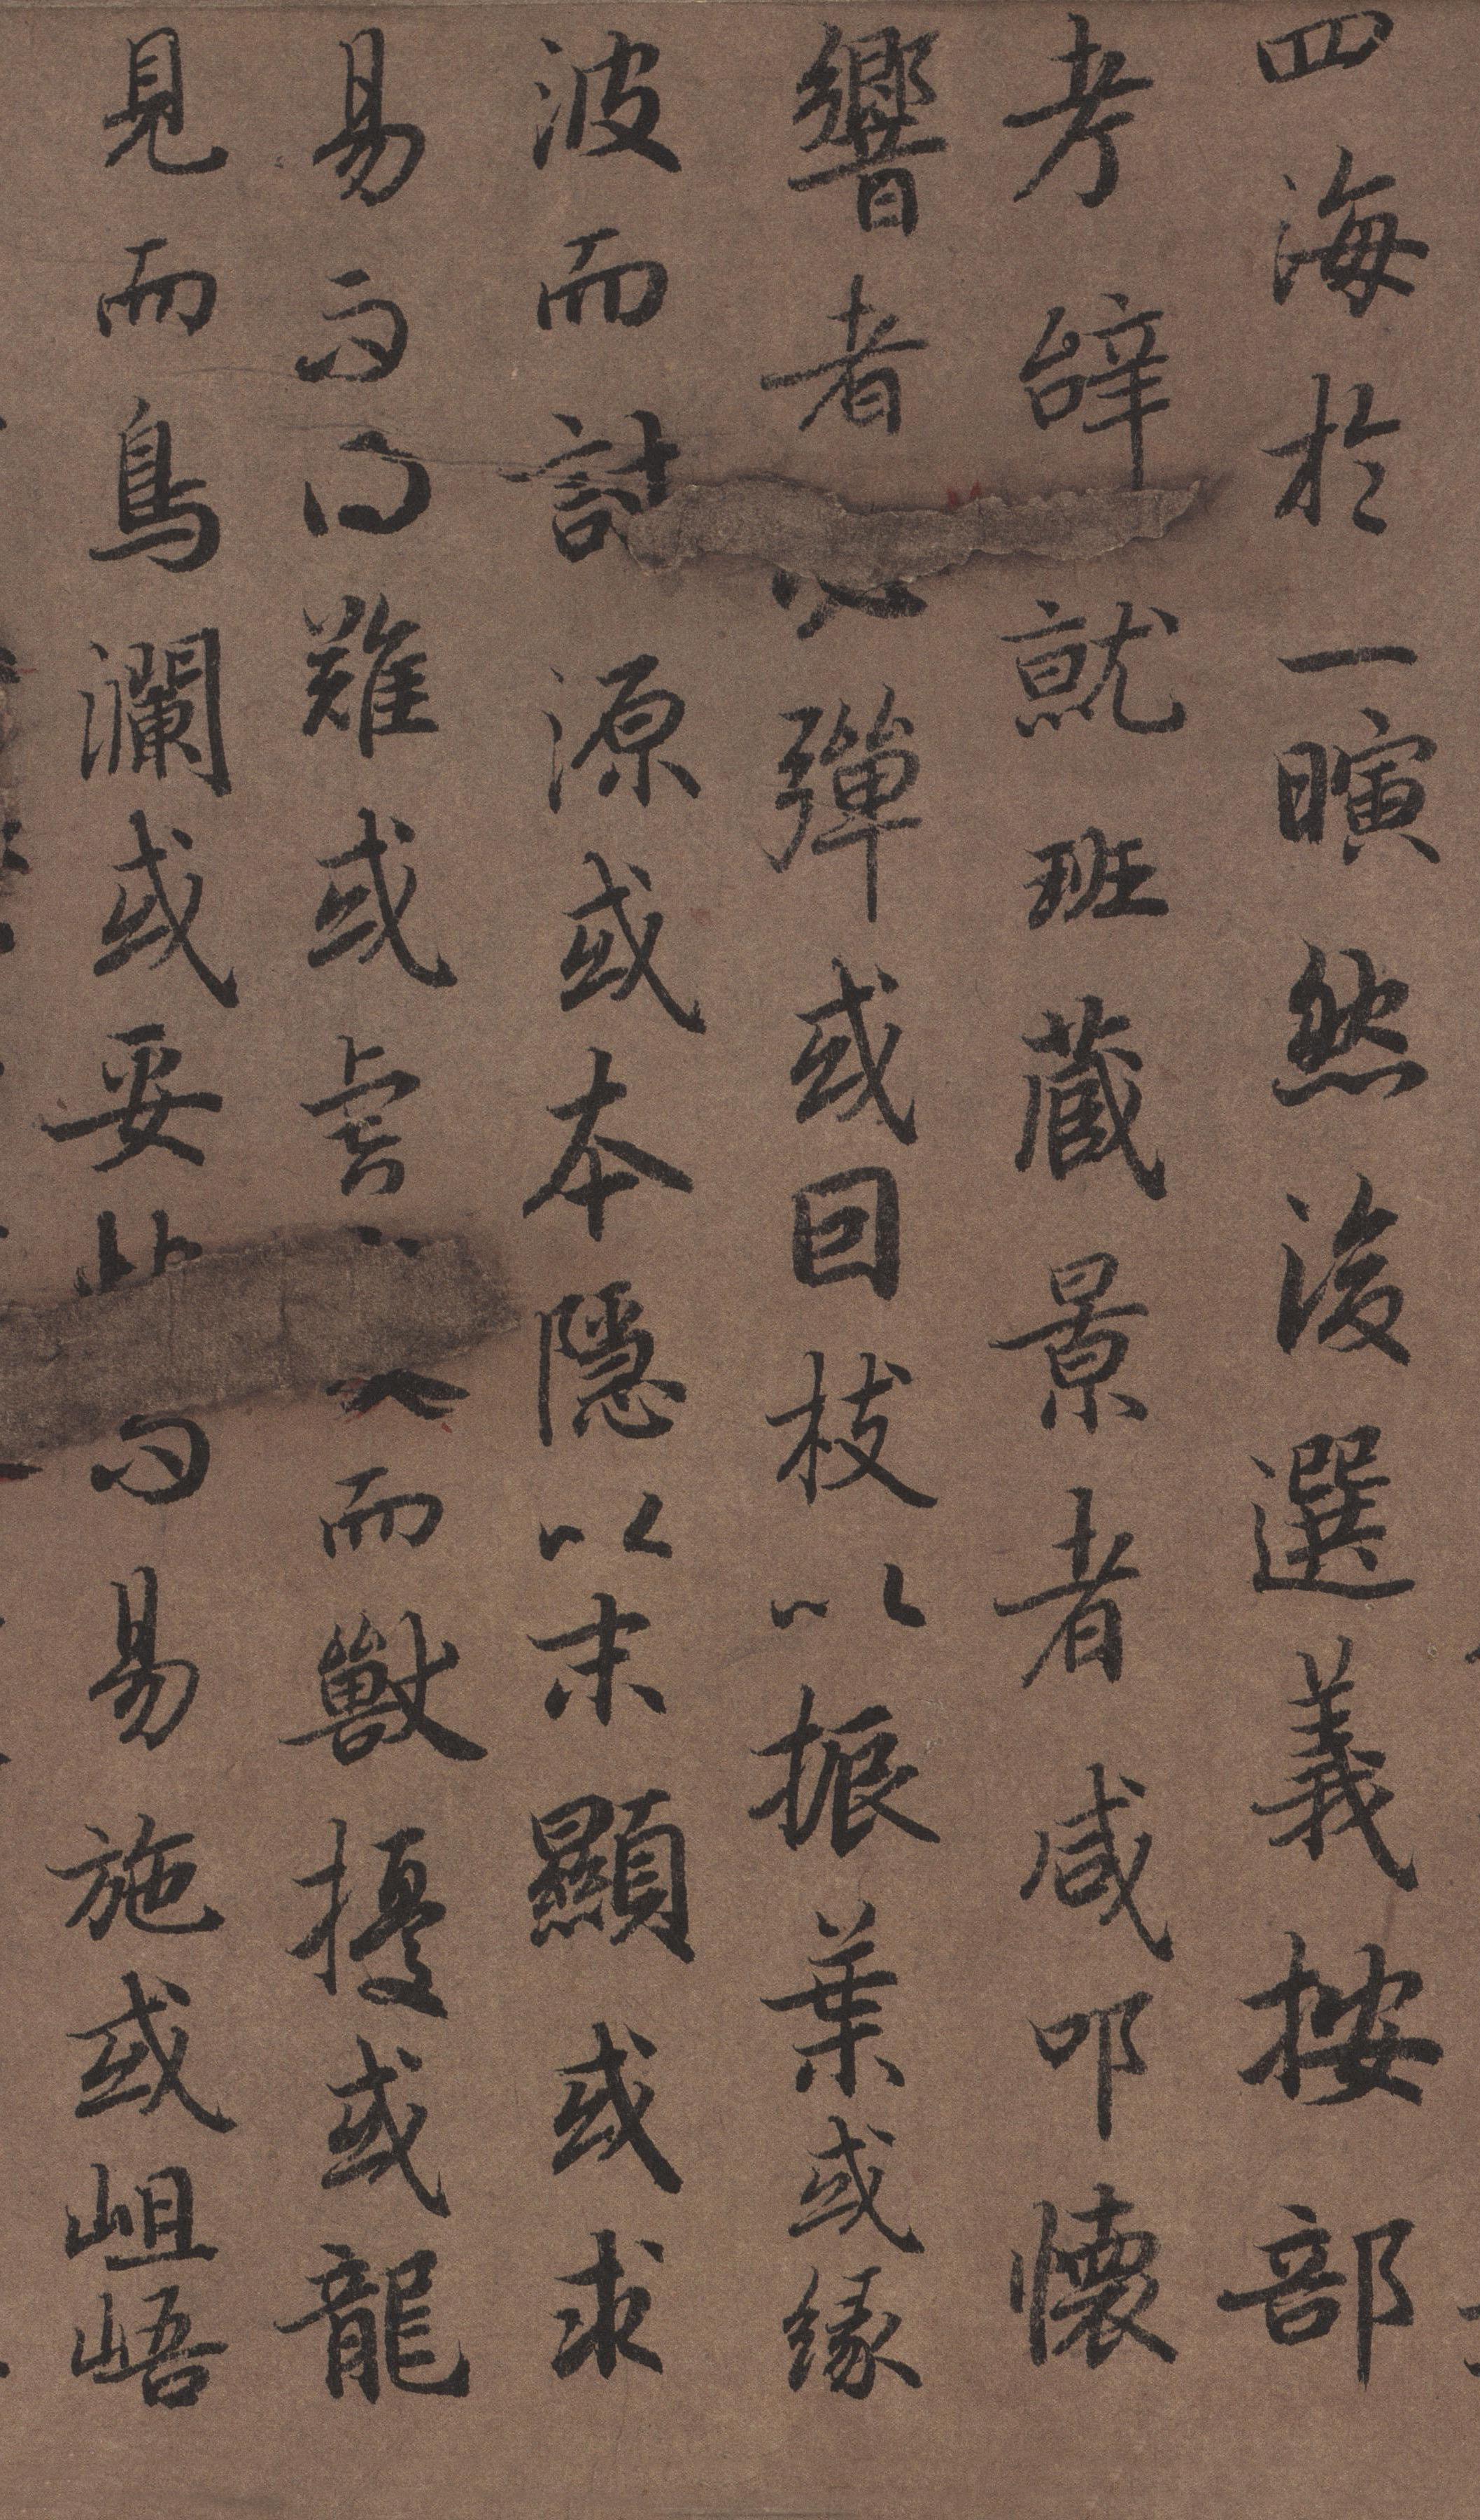 四海於一瞚然後選義按部
考辝就班藏景者咸叩懷
響者必彈或囙枝以振葉或緣
波而討源或本隱以末顯或求
易而得難或虎而獸擾或龍
見而鳥瀾或妥而易施或岨峿